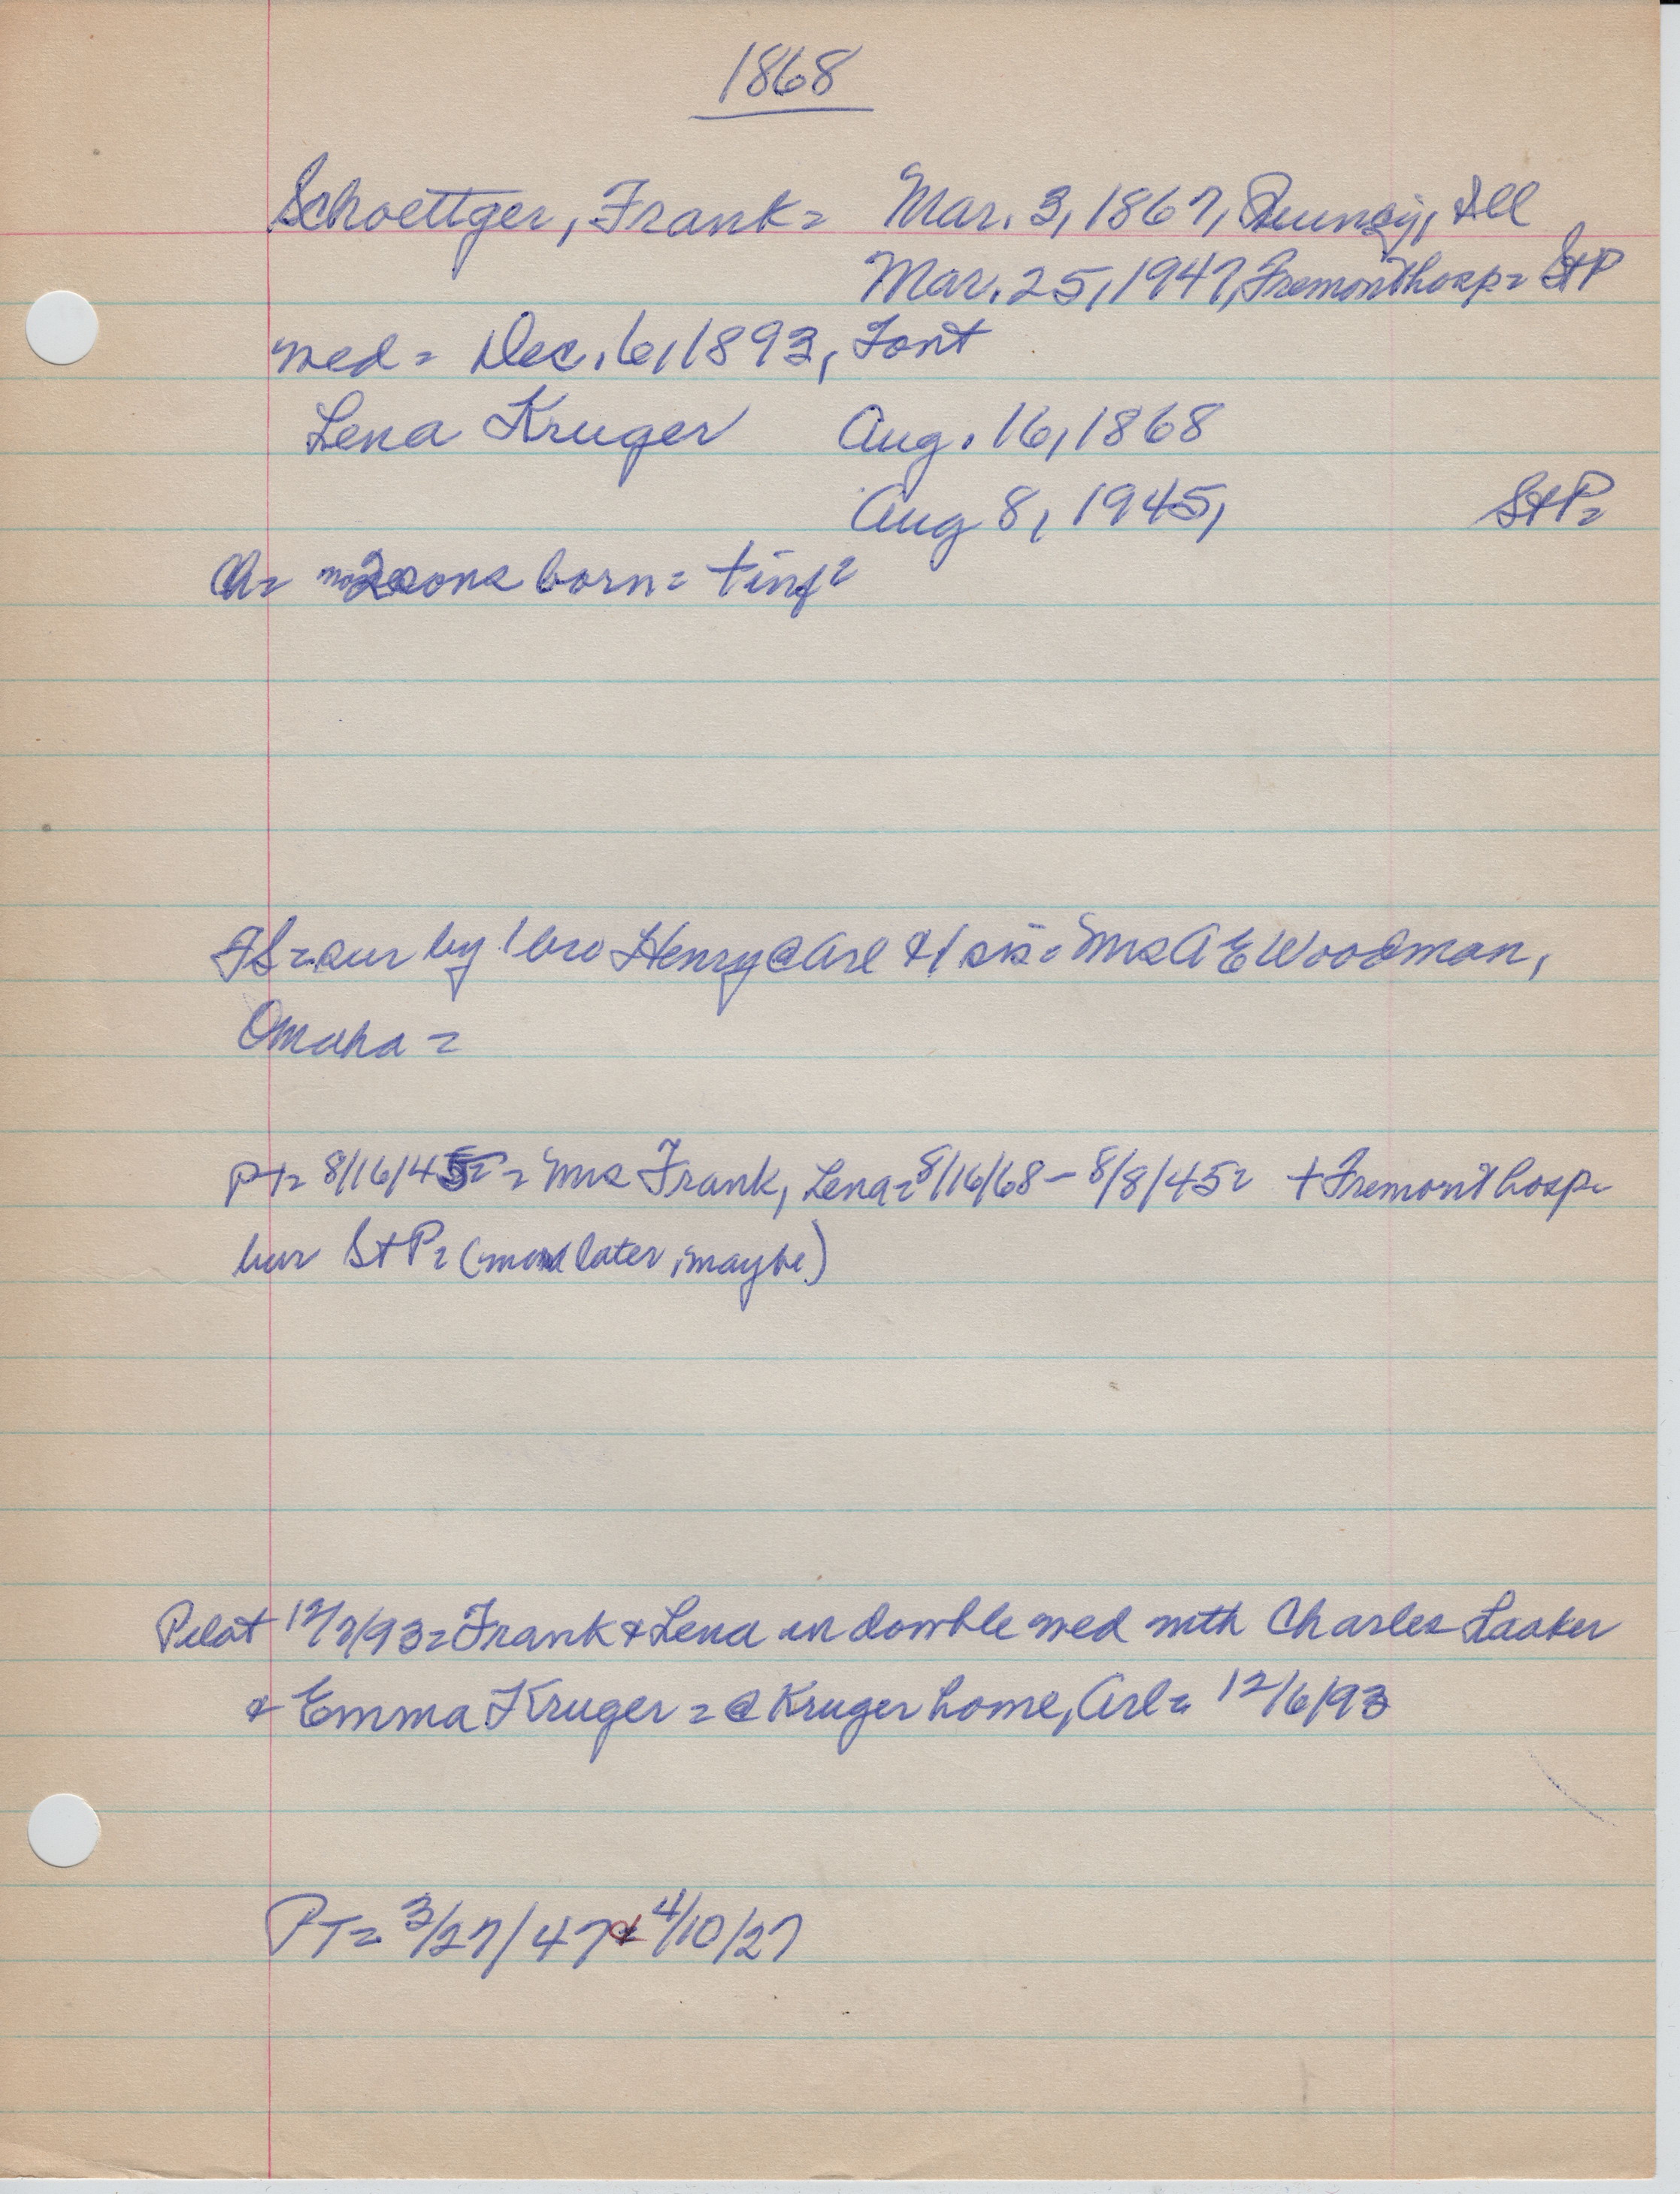 1868
Schoettger, Frank = Mar. 3, 1867, Ill
Mar. 25, 1947, Fremont hosp = St P
wed = Dec. 6, 1893, Font
Lena Kruger Aug. 16, 1868
Aug 8, 1945, St P =
Ch = 2 sons born = + inf =
FS = sur by 1 bro Henry @ Arl & 1 sis = Mrs A E Woodman,
Omaha =
PT = 8/16/45 = Mrs Frank, Lena = 8/16/68 - 8/8/45 = + Fremont hosp =
bur St P = (moved later, maybe)
Pilot 12/7/93 = Frank & Lena in double wed with Charles Laaker
& Emma Kruger = @ Kruger home, Arl = 12/6/93
PT = 3/27/47 & 4/10/27